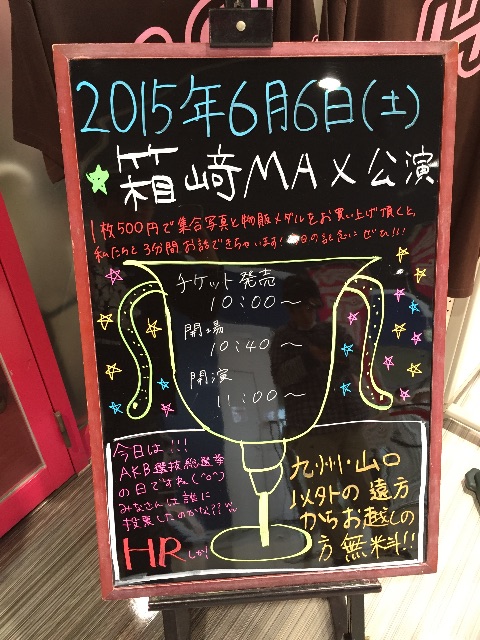 2015年6月6日(土)
箱崎MAX公演
1枚500円で集合写真と物販メダルをお買い上げ頂くと、
私たちと3分間お話できちゃいます! 日の記念にぜひ!!!
チケット発売
10:00～
開場
10:40～
開演
11:00～
今日は!!!
AKB選抜総選挙
の日ですね(^o^)
みなさんは誰に
投票したのかな??
HRしか!
九州・山口
以外の遠方
からお越しの
方無料!!